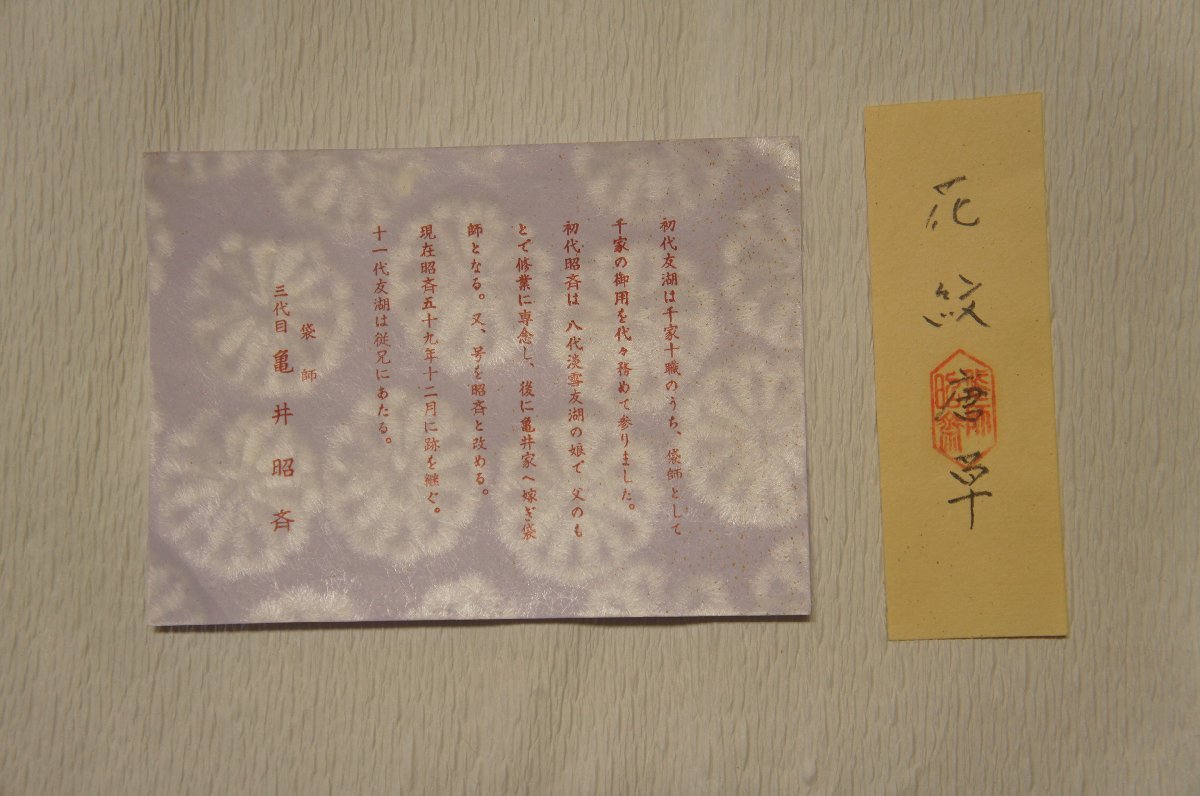 初代友湖は千家十職のうち、袋師として
千家の御用を代々務めて参りました。
初代昭斉は 八代淡雪友湖の娘で 父のも
とで修業に専念し、後に亀井家へ嫁ぎ袋
師となる。又、号を昭斉と改める。
現在昭斉五十九年十二月に跡を継ぐ。
十一代友湖は従兄にあたる。
袋師
三代目 亀井昭斉
花紋唐草